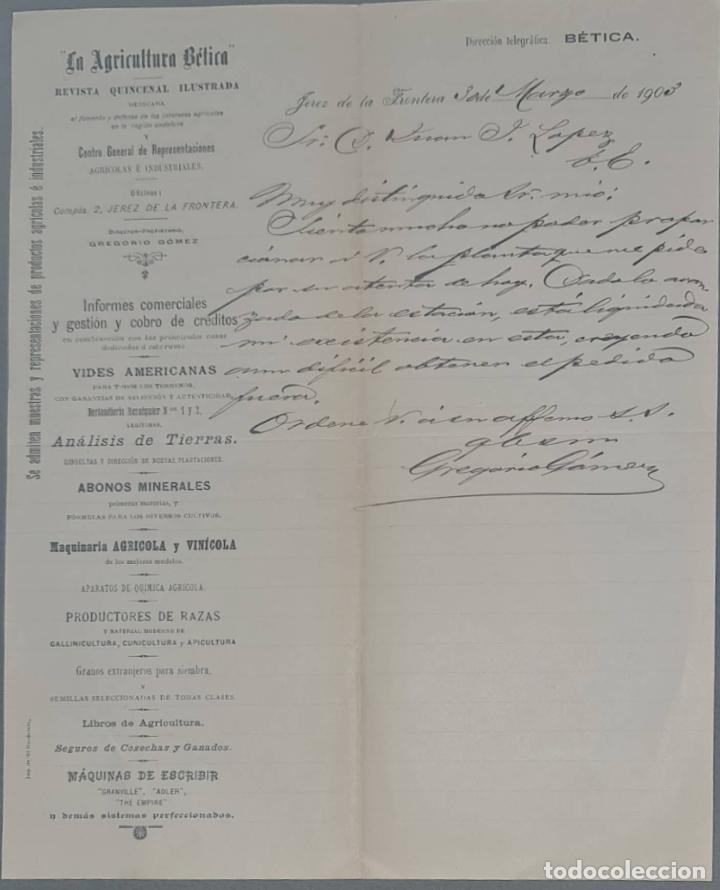 "La Agricultura Bética"
REVISTA QUINCENAL ILUSTRADA
DEDICADA
al fomento y defensa de los intereses agrícolas
en la región andaluza
Y
Centro General de Representaciones
AGRÍCOLAS É INDUSTRIALES.
Oficinas:
Compás, 2, JEREZ DE LA FRONTERA.
Director-Propietario,
GREGORIO GÓMEZ
Informes comerciales
y gestión y cobro de créditos
en combinación con las principales casas
dedicadas á este ramo
VIDES AMERICANAS
PARA TODOS LOS TERRENOS,
CON GARANTÍAS DE SELECCIÓN Y AUTENTICIDAD
Berlandieris Rességuier Nos 1 y 2,
LEGÍTIMAS.
Análisis de Tierras.
CONSULTAS Y DIRECCIÓN DE NUEVAS PLANTACIONES.
ABONOS MINERALES
primeras materias, y
FÓRMULAS PARA LOS DIVERSOS CULTIVOS.
Maquinaria AGRÍCOLA y VINÍCOLA
de los mejores modelos.
APARATOS DE QUÍMICA AGRÍCOLA.
PRODUCTORES DE RAZAS
Y MATERIAL MODERNO DE
GALLINICULTURA, CUNICULTURA y APICULTURA
Granos extranjeros para siembra,
Y
SEMILLAS SELECCIONADAS DE TODAS CLASES.
Libros de Agricultura.
Seguros de Cosechas y Ganados.
MÁQUINAS DE ESCRIBIR
"GRANVILLE", "ADLER",
"THE EMPIRE"
y demás sistemas perfeccionados.
Se admiten muestras y representaciones de productos agrícolas é industriales.
Dirección telegráfica. BÉTICA.
Jerez de la Frontera 3 de Marzo de 1903
Sr. D. Juan J. Lopez
Muy distinguido Sr. mio:
Siento mucho no poder propor
cionar á V. la planta que me pide
por su atenta de hoy. Dado lo avan
zado de la estación, está liquidada
mi existencia en esta, creyendo
aun dificil obtener el pedido
fuera.
Ordene V. á su affemo S. S.
q b s m
Gregorio Gómez
todocoleccion